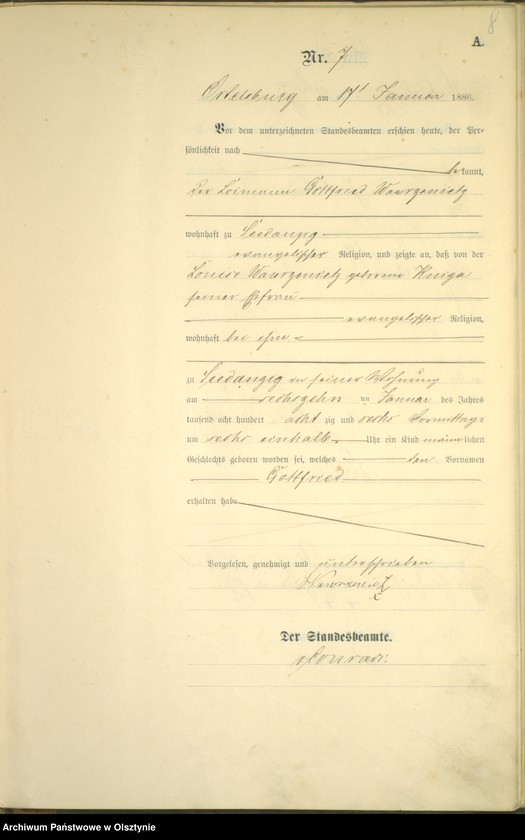 8
A.
Nr. 7
Ortelsburg am 17t Januar 1886.
Vor dem unterzeichneten Standesbeamten erschien heute, der Per-
sönlichkeit nach
bekannt,
der Gottfried Wawrzenietz
wohnhaft zu Seedanzig
evangelischer Religion, und zeigte an, daß von der
Louise Wawrzenietz geborene Kniza
seiner Ehefrau
evangelischer Religion,
wohnhaft bei ihm
zu Seedanzig in seiner Wohnung
am sechszehn ten Januar des Jahres
tausend acht hundert acht zig und sechs Vormittags
um sechs einhalb Uhr ein Kind männlichen
Geschlechts geboren worden sei, welches den Vornamen
Gottfried
erhalten habe
Vorgelesen, genehmigt und unterschrieben
Wawrzenietz
Der Standesbeamte.
Conradi
Archiwum Państwowe w Olsztynie